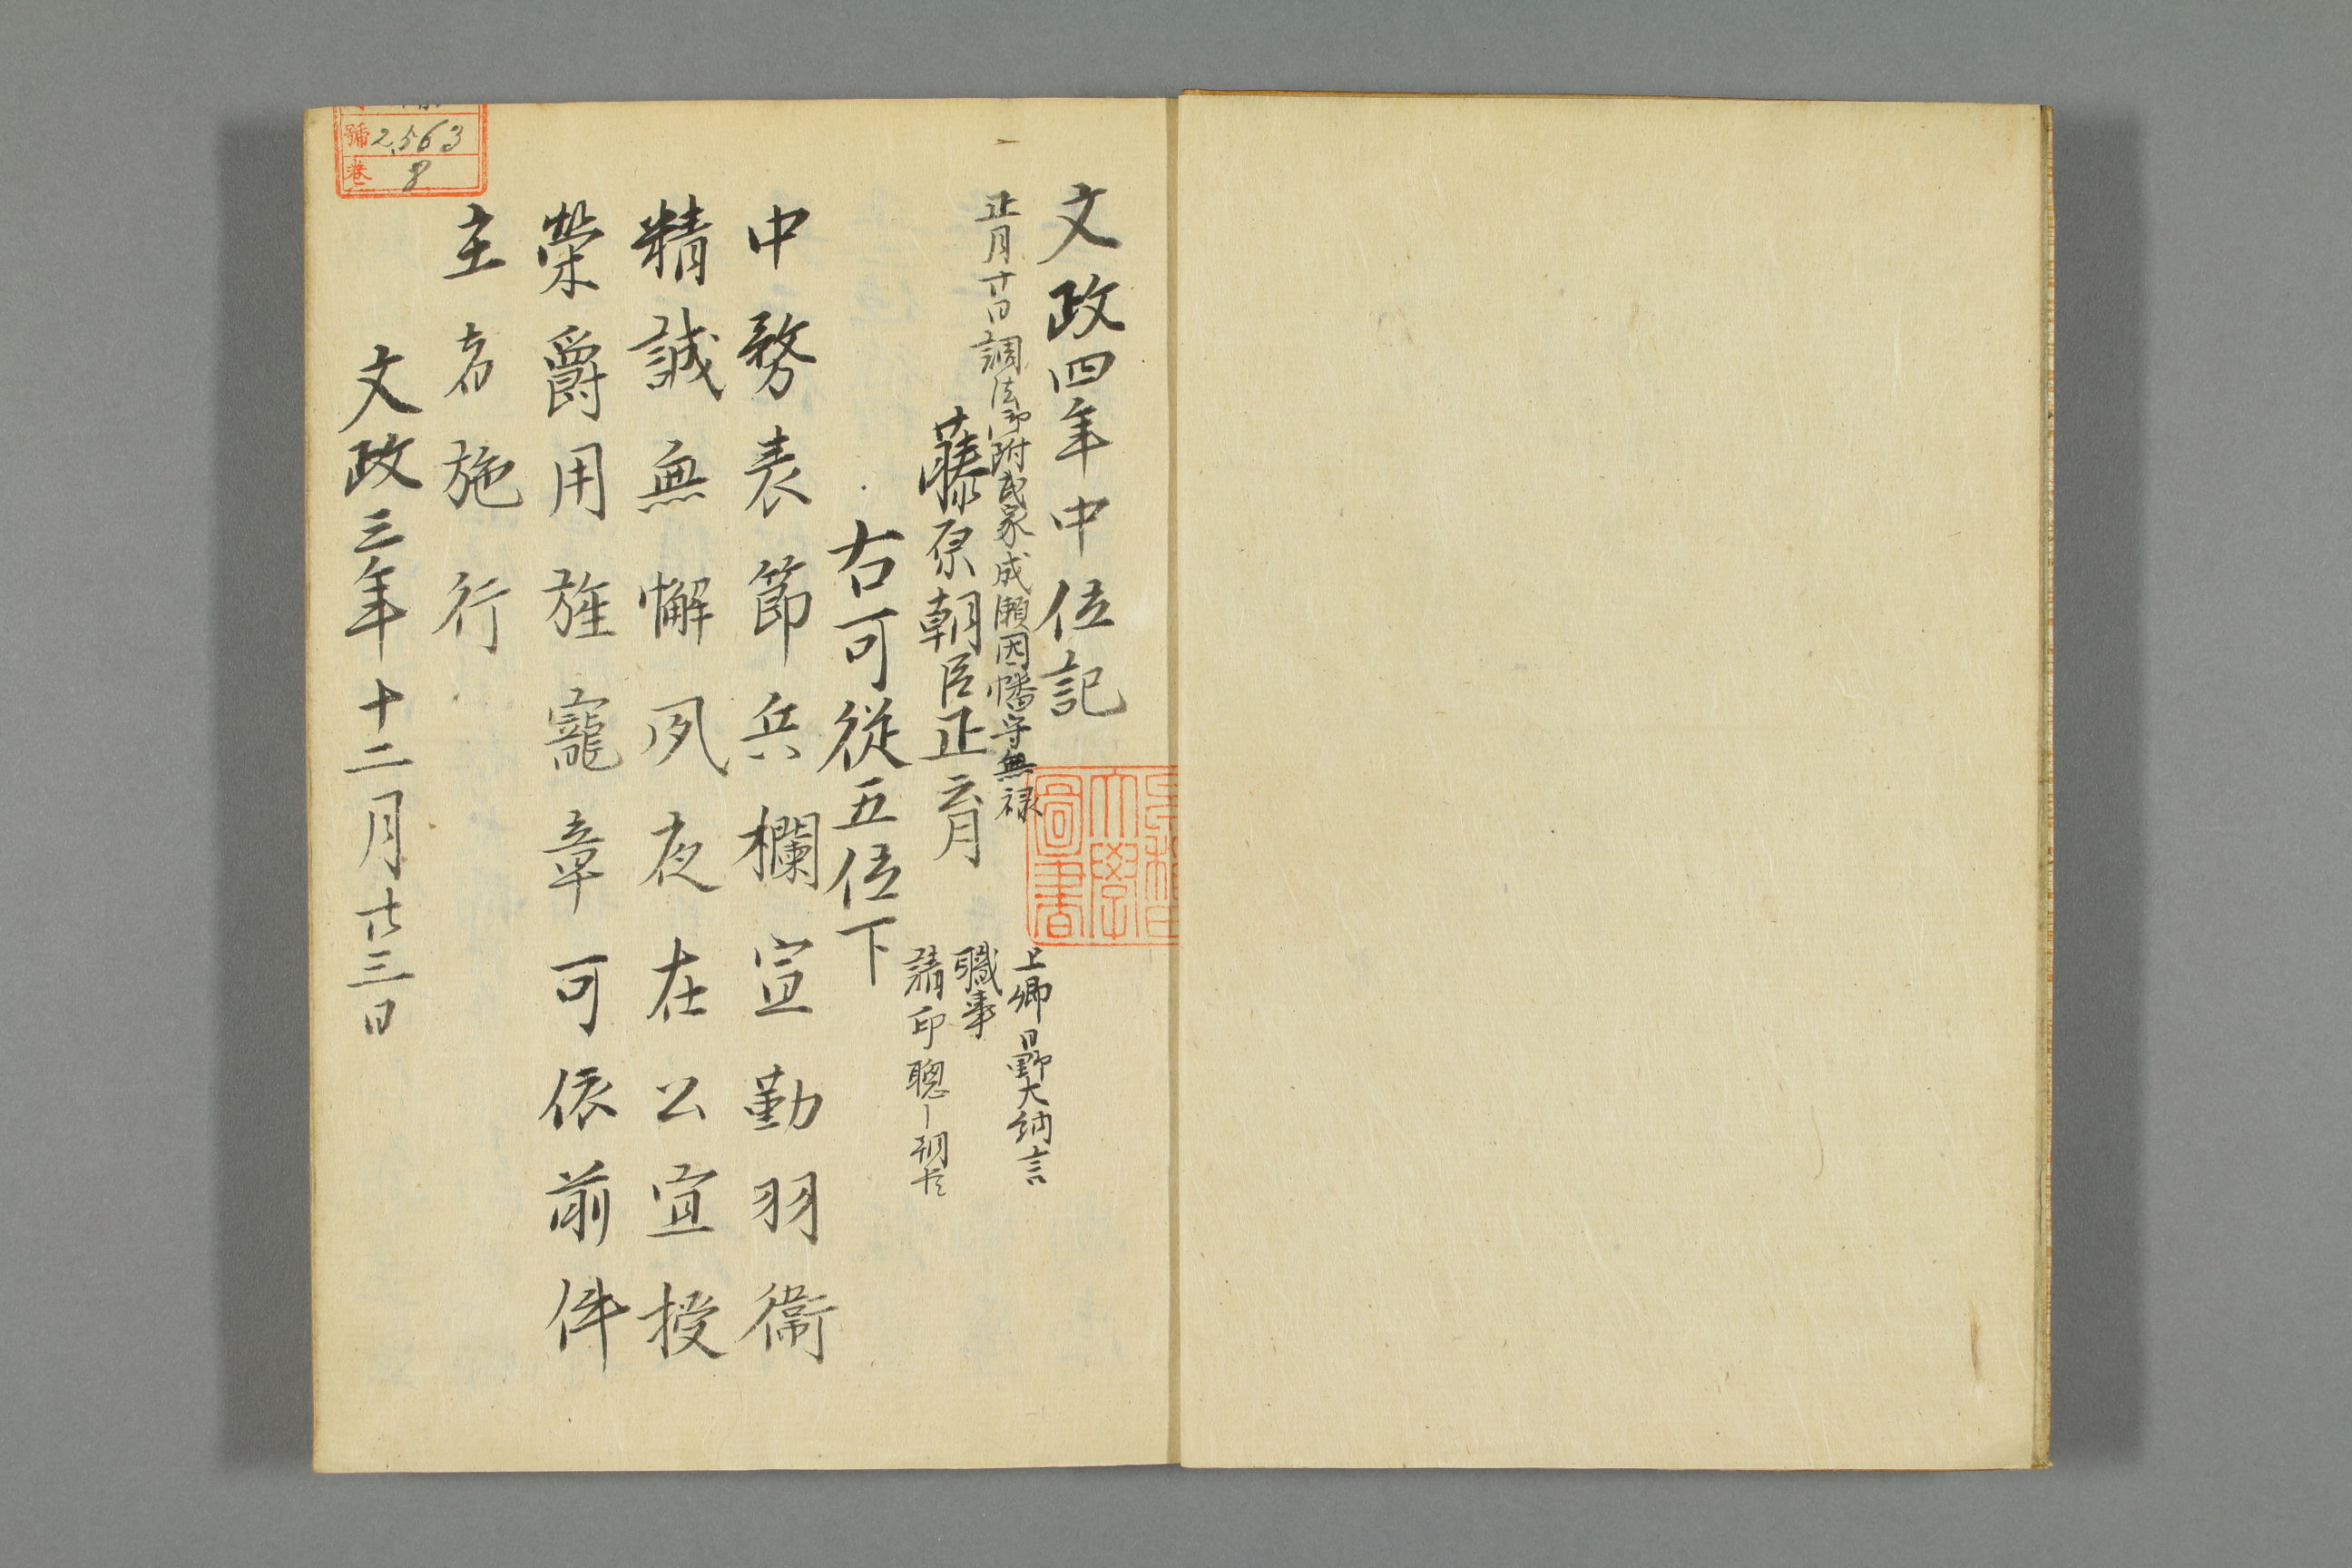 文政四年中位記
一
正月廿日調 附武家成瀬因幡守無禄
藤原朝臣正育
上卿日野大納言
職事
請印聰
右可従五位下
中務表節兵欄宣勤羽衞
精誠無懈夙夜在公宜授
榮爵用旌寵章可依前件
主者施行
文政三年十二月廿三日
號2,563
卷8
大學
圖書